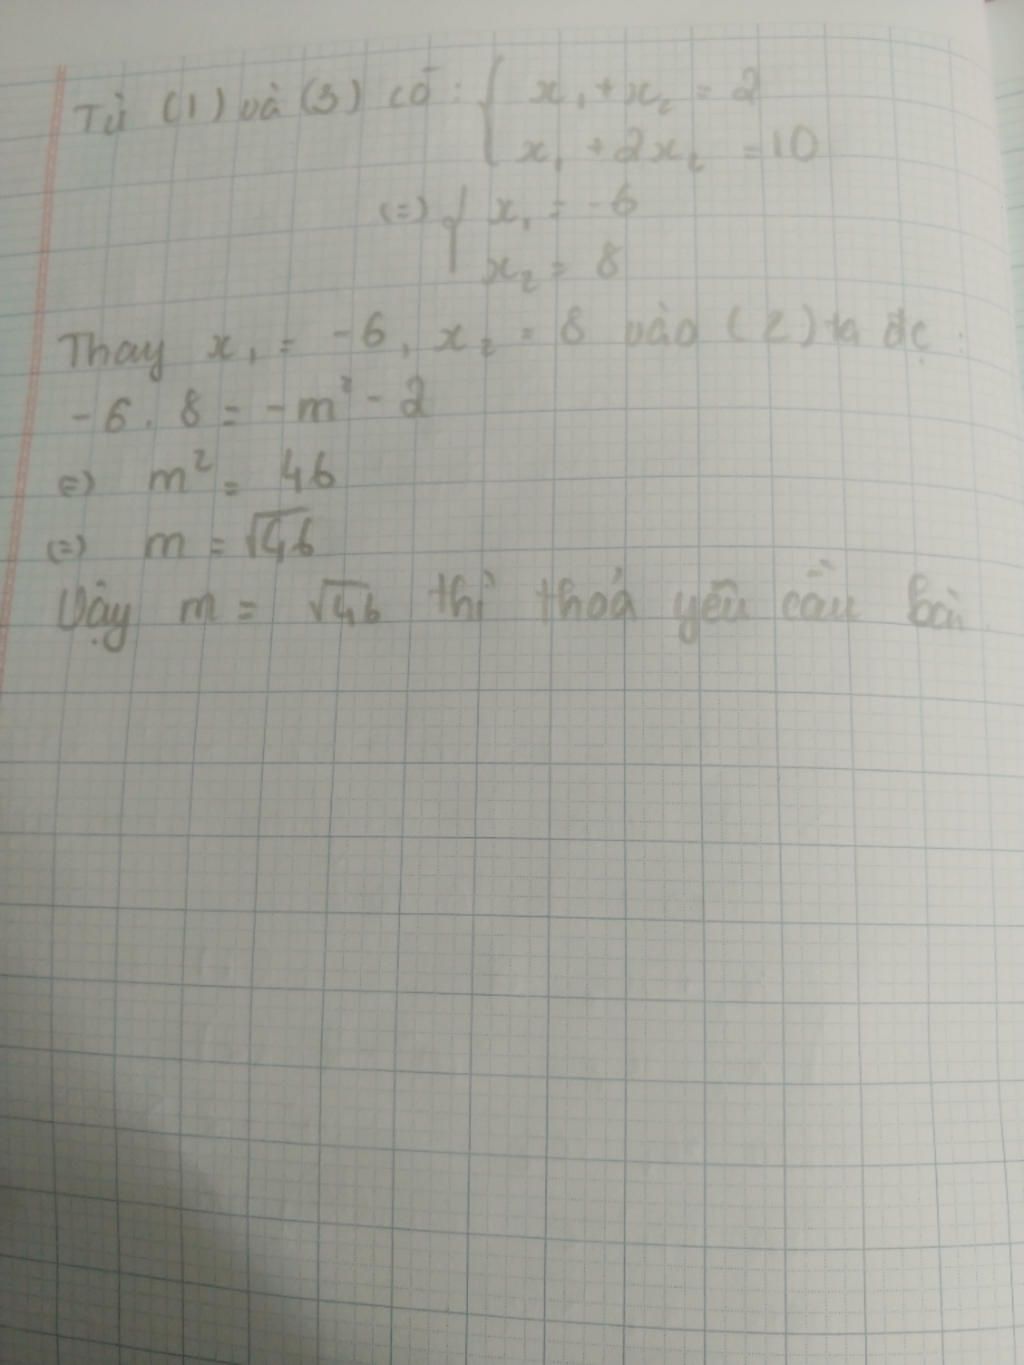 Từ (1) và (3) có: { x₁ + x₂ = 2
x₁ + 2x₂ = 10
(=) { x₁ = -6
x₂ = 8
Thay x₁ = -6, x₂ = 8 vào (2) ta đc:
-6 . 8 = -m² - 2
(=) m² = 46
(=) m = √46
Vậy m = √46 thì thoả yêu cầu bài